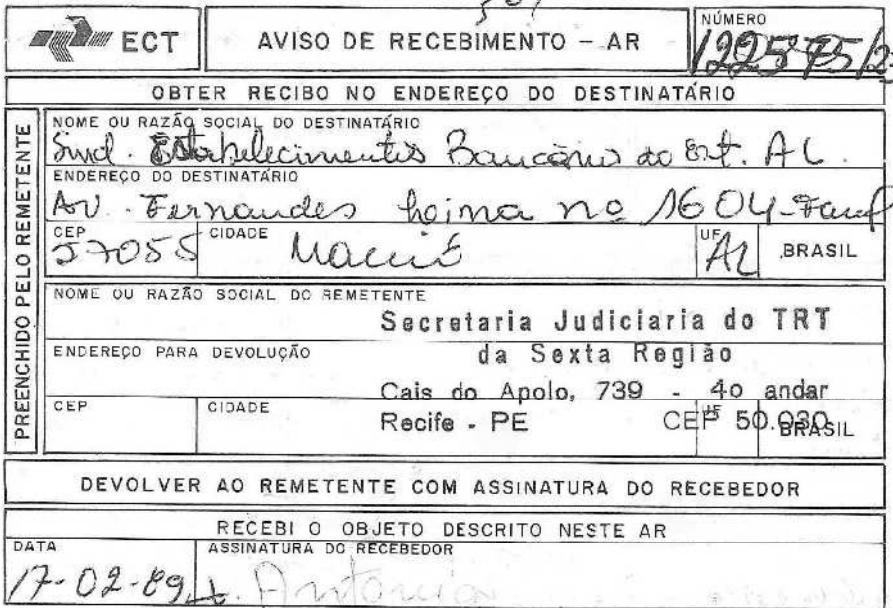 ECT
AVISO DE RECEBIMENTO - AR
NÚMERO
OBTER RECIBO NO ENDEREÇO DO DESTINATÁRIO
PREENCHIDO PELO REMETENTE
NOME OU RAZÃO SOCIAL DO DESTINATÁRIO
Sind. Estabelecimentos Bancário do Est. AL.
ENDEREÇO DO DESTINATÁRIO
AV. Fernandes Loima nº 1604
CEP CIDADE UF
57055 Maceió AL BRASIL
NOME OU RAZÃO SOCIAL DO REMETENTE
Secretaria Judiciaria do TRT
ENDEREÇO PARA DEVOLUÇÃO da Sexta Região
Cais do Apolo, 739 - 4o andar
CEP CIDADE UF
Recife - PE CEP 50.030 BRASIL
DEVOLVER AO REMETENTE COM ASSINATURA DO RECEBEDOR
RECEBI O OBJETO DESCRITO NESTE AR
DATA ASSINATURA DO RECEBEDOR
17-02-89 Antonia